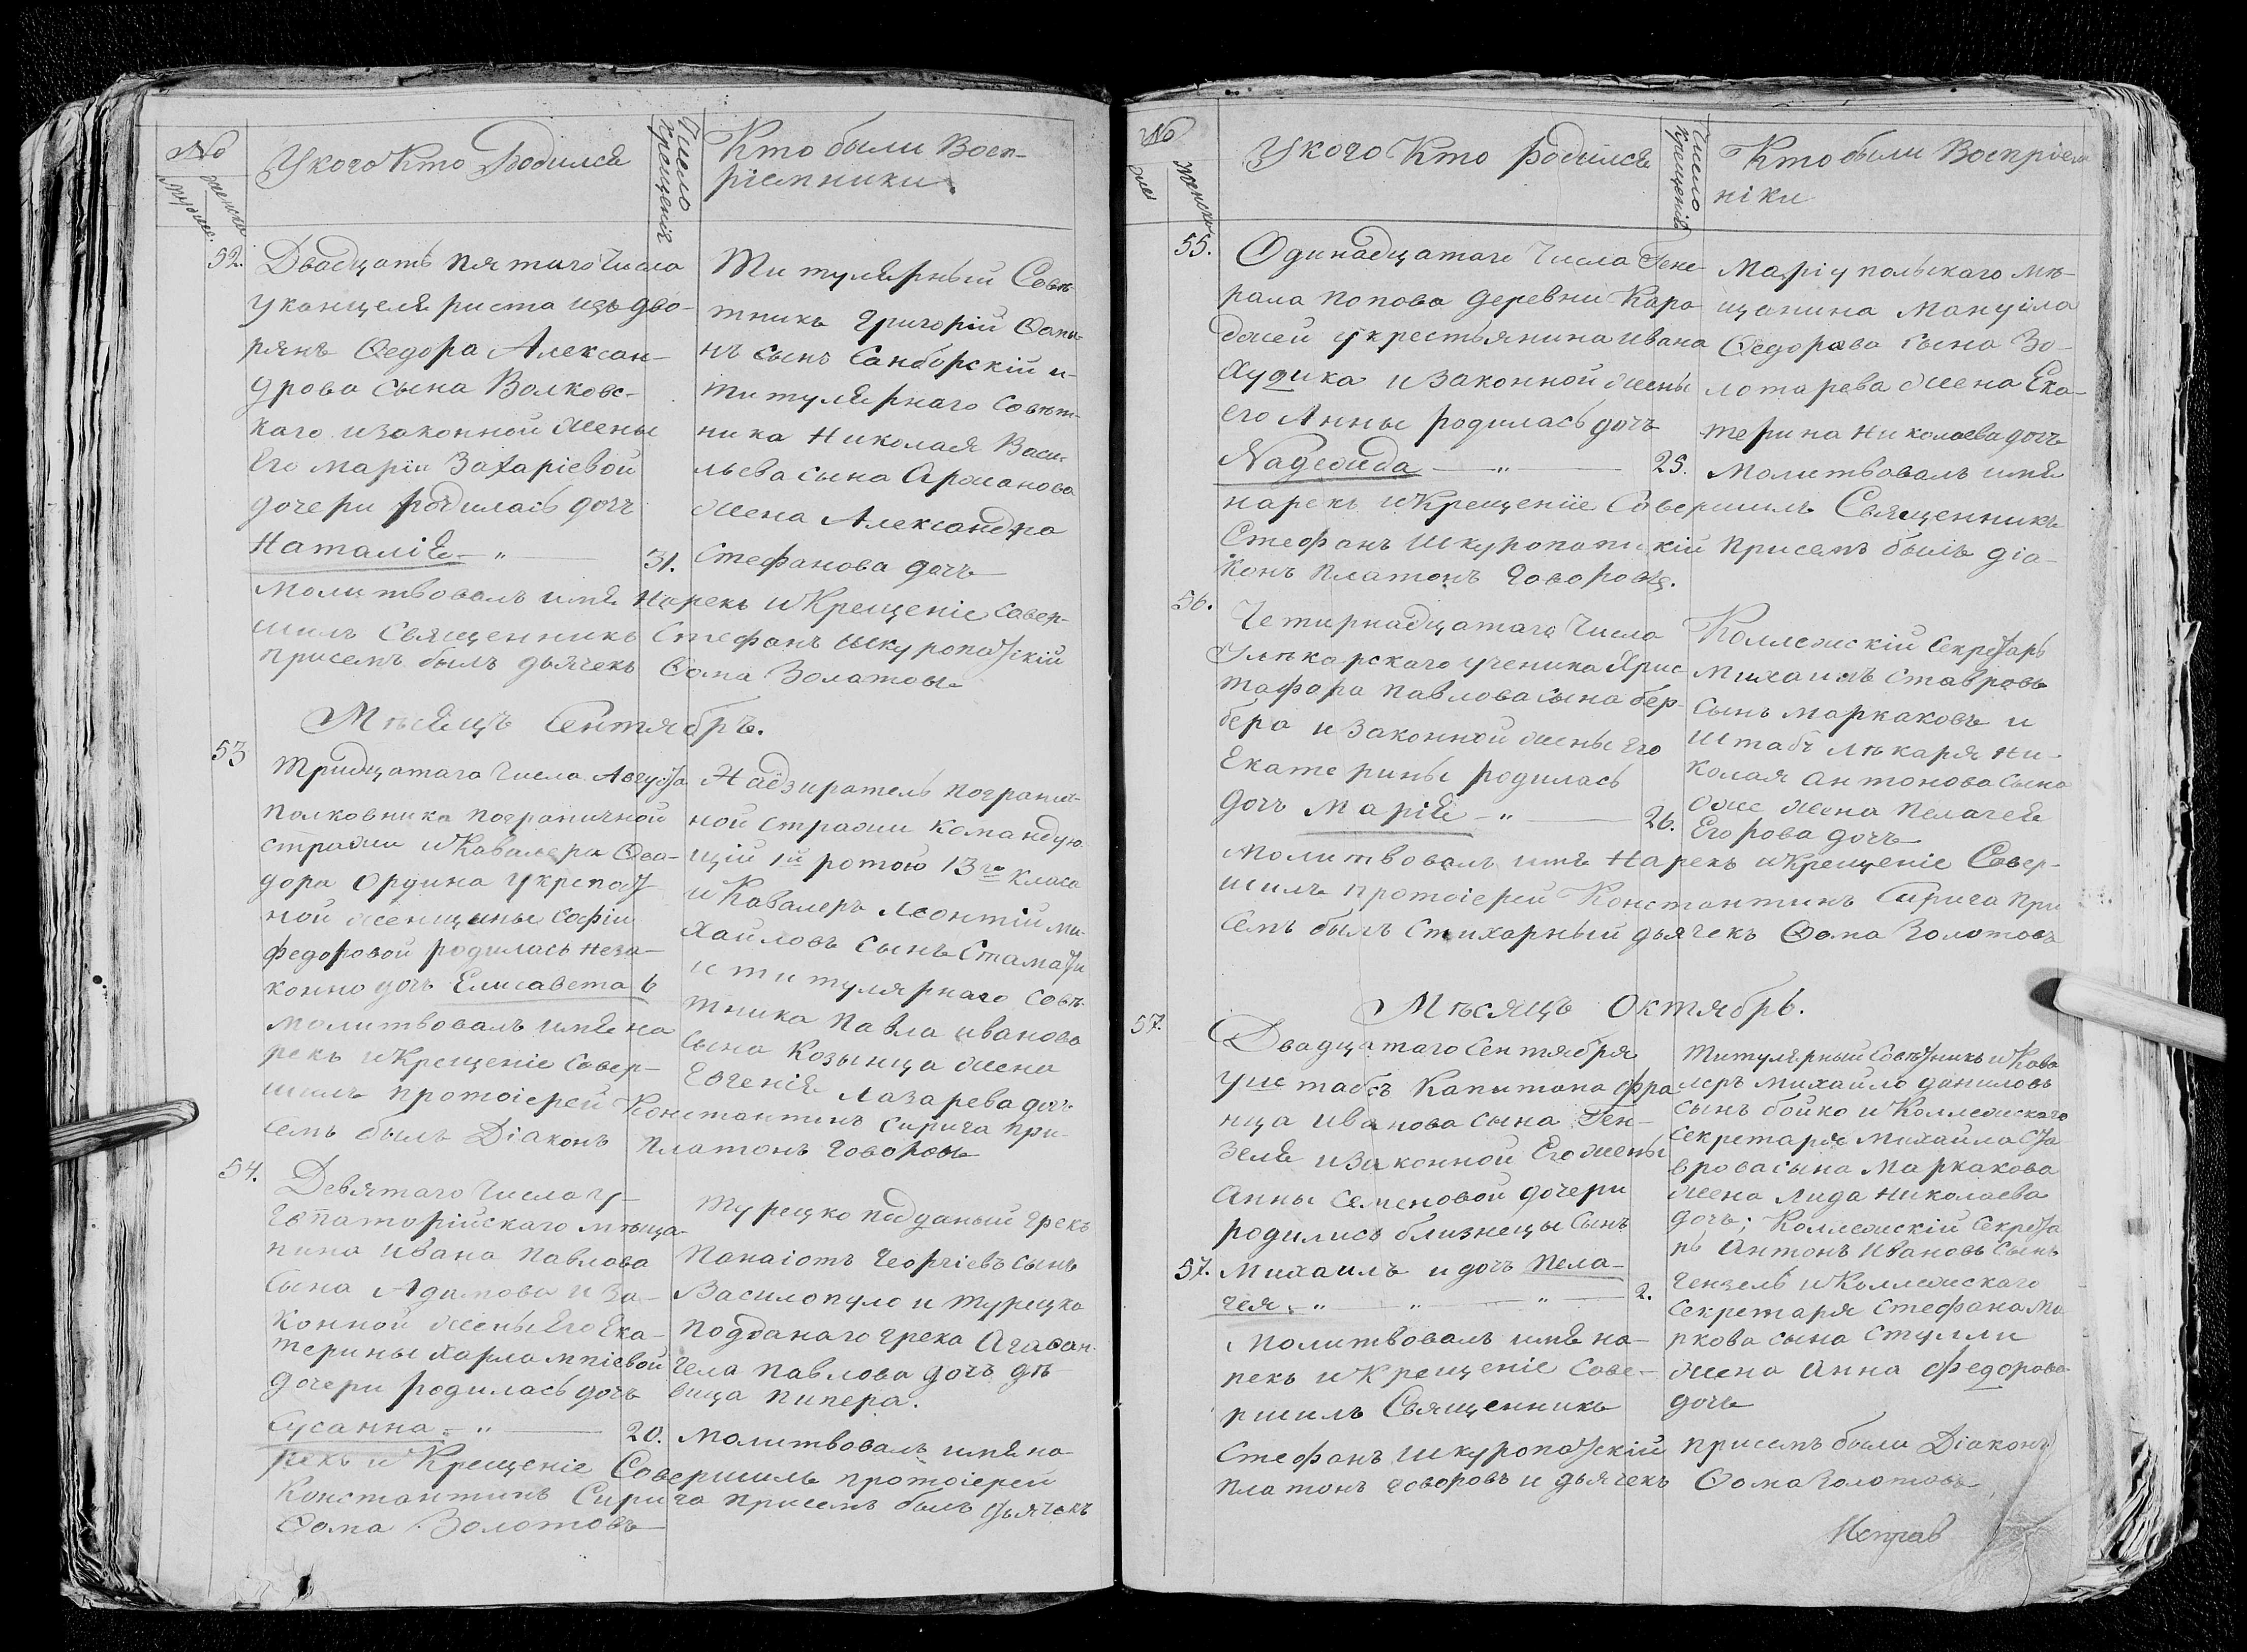 №
мужес.
женска
У кого Кто Родился
Число
крещенія
Кто были Восп-
ріемники.
52.
Двадцать пятаго Числа
у канцеляриста изъ дво-
рянъ Ѳедора Алексан-
дрова сына Волковс-
каго и законной жены
Его Маріи Захаріевой
дочери родилась дочь
Наталія — „ — 31.
Титулярный Совѣ-
тникъ Григорій
нъ сынъ Санборскій и
титулярнаго совѣт-
ника Николая Васи-
льева сына Аржанова
жена Александра
Стефанова дочь
Молитвовалъ имя Нарекъ и Крещеніе совер-
шилъ Священникъ Стефанъ Шкуропатскій
присемъ былъ дьячекъ Ѳома Золатовъ
Мѣсяцъ Сентябрь.
53
Тридцатаго Числа Августа
Полковника пограничной
стражи и Кавалера Ѳео-
дора Ордина у крепост
ной женщины Софіи
федоровой родилась неза-
конно дочь Елисавета 6
молитвовалъ имя на
рекъ и Крещеніе Совер-
шилъ протоіерей Константинъ Сирига при-
семъ былъ Діаконъ Платонъ Говоровъ
Надзиратель погранич-
ной стражи командую
щій 1й ротою 13го класа
и Кавалеръ Леонтій ми-
хайловъ сынъ Стамати
и титулярнаго совѣ-
тника Павла иванова
сына Козынца жена
Евгенія Лазарева дочь
54.
Девятаго Числа у
Евпаторійскаго мѣща-
нина Ивана Павлова
Сына Адамова и за-
конной жены Его Ека-
терины Харлампіевой
дочери родилась дочь
Сусанна — „ — 20.
Турецко подданый грекъ
Панаіотъ Георгіевъ сынъ
Василопуло и турецко
подданаго грека Агаѳан-
гела Павлова дочь дѣ
вица Пипера.
Молитвовалъ имя на
рекъ и Крещеніе Совершилъ протоіерей
Константинъ Сирига присемъ былъ дьячекъ
Ѳома Золотовъ
№
муж
женска
У кого Кто родился
Число
крещенія
Кто были Воспріем
ніки
55.
Одинадцатаго Числа Гене-
рала Попова деревни Кара
джей у крестьянина ивана
Худика и законной жены
его Анны родилась дочь
Надежда — „ — 25.
Маріупольскаго мѣ-
щанина Мануила
Ѳедорова сына Зо-
лотарева жена Ека-
терина Николаева дочь
Молитвовалъ имя
нарекъ и Крещеніе Совершилъ Священникъ
Стефанъ Шкуропатскій Присемъ былъ діа-
конъ Платонъ Говоровъ.
56.
Четырнадцатаго Числа
У лѣкарскаго ученика Хрис
тафора Павлова сына бер-
бера и законной жены Его
Екатерины родилась
дочь Марія — „ — 26.
Коллежскій Секретарь
Михаилъ Ставровъ
Сынъ Маркаковъ и
Штабъ лѣкаря Ни-
колая антонова сына
жена Пелагея
Егорова дочь
Молитвовалъ имя Нарекъ и Крещеніе Совер-
шилъ протоіерей Константинъ Сирига при
семъ былъ Стихарный дьячекъ Ѳома Золотовъ
Мѣсяцъ Октябрь.
57.
Двадцатаго Сентября
У штабсъ Капитана Фра
нца Иванова сына Ген-
зеля и законной Его жены
Анны Семеновой дочери
родились близнецы Сынъ
57. Михаилъ и дочь Пела-
гея — „ — „ — „ — 2.
Титулярный Совѣтникъ и Кава
леръ Михайло даниловъ
сынъ бойко и Коллежскаго
секретаря Михайла Ста
врова сына Маркакова
жена Лида Николаева
дочь; Коллежскій Секрета
рь Антонъ Ивановъ Сынъ
Гензель и Коллежскаго
секретаря Стефана Ма
ркова сына Стулли
жена Анна Федорова
дочь
Молитвовалъ имя на-
рекъ и Крещеніе Сове-
ршилъ Священникъ
Стефанъ Шкуропатскій присемъ были Діаконъ
Платонъ Говоровъ и дьячекъ Ѳома Золотовъ